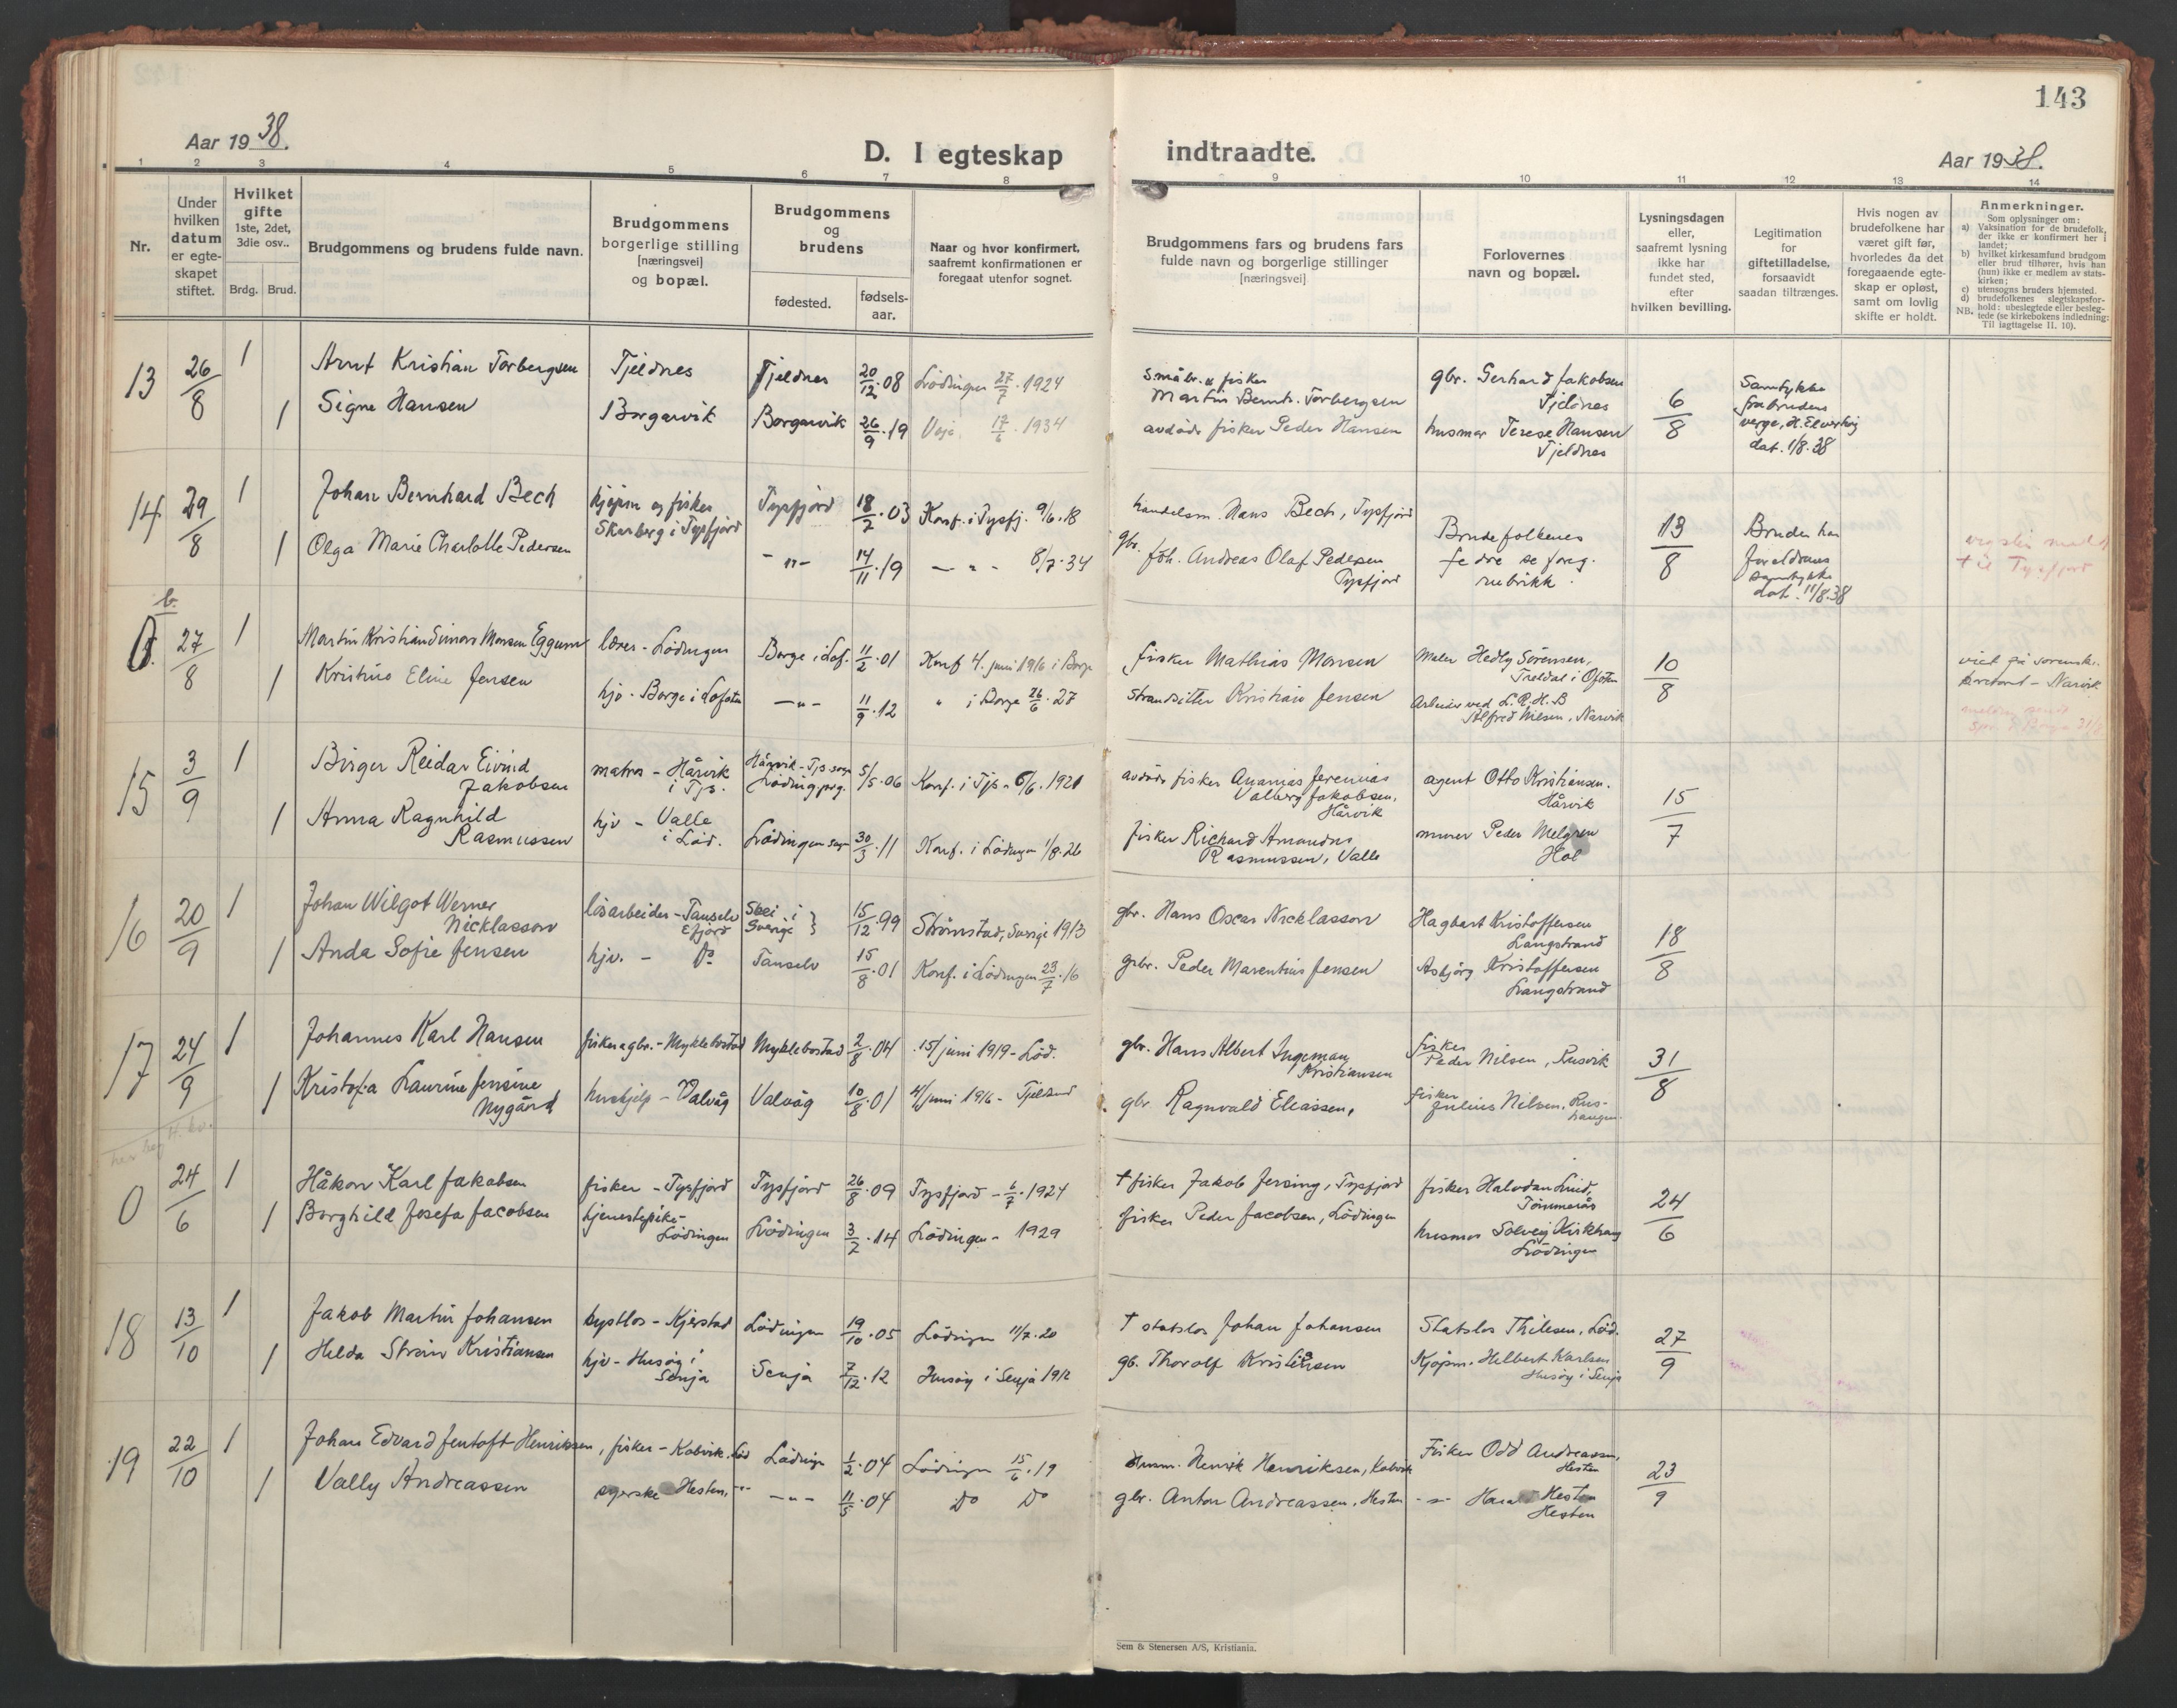 143
Aar 1938.
D. I egteskap indtraadte.
Aar 1938.
1 2 3 4 5 6 7 8 9 10 11 12 13 14
Nr.
Under hvilken datum er egte-skapet stiftet.
Hvilket gifte 1ste, 2det, 3die osv..
Brdg. Brud.
Brudgommens og brudens fulde navn.
Brudgommens borgerlige stilling [næringsvei] og bopæl.
Brudgommens og brudens
fødested.
fødsels-aar.
Naar og hvor konfirmert, saafremt konfirmationen er foregaat utenfor sognet.
Brudgommens fars og brudens fars fulde navn og borgerlige stillinger [næringsvei]
Forlovernes navn og bopæl.
Lysningsdagen eller, saafremt lysning ikke har fundet sted, efter hvilken bevilling.
Legitimation for giftetilladelse, forsaavidt saadan tiltrænges.
Hvis nogen av brudefolkene har været gift før, hvorledes da det foregaaende egte-skap er opløst, samt om lovlig skifte er holdt.
Anmerkninger.
Som oplysninger om:
a) Vaksination for de brudefolk, der ikke er konfirmert her i landet;
b) hvilket kirkesamfund brudgom eller brud tilhører, hvis han (hun) ikke er medlem av stats-kirken;
c) utensogns bruders hjemsted.
d) brudefolkenes slegtskapsfor-hold: ubeslegtede eller besleg-tede (se kirkebokens indledning: Til iagttagelse II, 10).
NB.
13 26/8 1 Arnt Kristian Torbergsen Tjeldnes Tjeldnes 20/12.08 Lödingen 27/7.1924
småbr. & fisker Martin Bernt. Torbergsen
gbr. Gerhard Jakobsen Tjeldnes
6/8
Samtykke fra brudens verge, H. dat. 1/8.38
1 Signe Hansen Borgarvik Borgarvik 26/9.19 17/6.1934
avdöde fisker Peder Hansen
husmor Terese Hansen Tjeldnes
14 29/8 1 Johan Bernhard Bech kjöpm og fisker Skarberg i Tysfjord Tysfjord 18/2.03 Konf. i Tysfj. 9/6.18
handelsm. Hans Bech, Tysfjord
Brudefolkenes fedre se foreg. rubrikk.
13/8
Bruden har foreldrenes samtykke dat. 11/8.38
til Tysfjord
1 Olga Marie Charlotte Pedersen -"- 14/11.19 - " - 8/7.34
gbr. Joh. Andreas Olaf Pedersen Tysfjord
b. 27/8 1 Martin Kristian Monsen Eggum lærer - Lödingen Borge i Lof. 11/2.01 Konf 4. juni 1916 i Borge
fisker Mathias Monsen
Maler Hedly Sörensen, Treldal i Ofoten
10/8
viet på sorensk. - Narvik
1 Kristine Eline Jensen hjv. Borge i Lofoten -"- 11/9.12 " i Borge 26/6.27
strandsitter Kristian Jensen
Arbeider ved L.R.H.B Alfred Nilsen, Narvik
15 3/9 1 Birger Reidar Eivind Jakobsen matros - Hårvik i Tjs. Hårvik - Tjs sogn Löding prg. 5/5.06 Konf. i Tjs. 6/6.1921
avdöde fisker Ananias Jeremias Valberg Jakobsen, Hårvik
agent Otto Kristiansen. Hårvik
15/7
1 Anna Ragnhild Rasmussen hjv - Valle i Löd. Lödingen sogn 30/3.11 Konf. i Lödingen 1/8.26
fisker Richard Amandus Rasmussen, Valle
murer Peder Melgren Hol
16 20/9 1 Johan Wilgot Werner Nicklasson lösarbeider - Tanselv Efjord Skei i Sverige 15/12.99 Strömstad, Sverige 1913
gbr. Hans Oscar Nicklasson
Hagbart Kristoffersen Langstrand
18/8
1 Anda Sofie Jensen hjv. - Do Tanselv 15/8.01 Konf. i Lödingen 23/7.16
gbr. Peder Marentius Jensen
Asbjörg Kristoffersen Langstrand
17 24/9 1 Johannes Karl Hansen fisker & gbr. - Myklebostad Myklebostad 2/8.04 15/juni 1919 - Löd.
gbr. Hans Albert Ingeman Kristiansen
fisker Peder Nilsen, Rusvik
31/8
1 Kristofa Laurine Jensine Nygård hushjelp - Valvåg Valvåg 10/8.01 4/juni 1916 - Tjeldsund
gbr Ragnvald Eliassen,
fisker Julius Nilsen, Rus-haugen
0 24/6 1 Håkon Karl Jakobsen fisker - Tysfjord Tysfjord 26/8.09 Tysfjord - 6/7.1924
† fisker Jakob Jersing, Tysfjord
fisker Halvdan Lund, Tömmerås
24/6
1 Borghild Josefa Jacobsen tjenestepike - Lödingen Lödingen 3/2.14 Lödingen - 1929
fisker Peder Jacobsen, Lödingen
husmor Solveig Kirkhaug Lödingen
18 13/10 1 Jakob Martin Johansen kystlos - Kjerstad Lödingen 19/10.05 Lödingen 11/7.20
† statslos Johan Johansen
Statslos Thilesen, Löd.
27/9
1 Helda Kristiansen hjv - Husöy i Senja Senja 7/12.12 Husöy i Senja 1912
gb. Thorolf Kristiansen
Kjöpm. Helbert Karlsen Husöy i Senja
19 22/10 1 Johan Edvard Jentoft Henriksen, fisker - Kobvik. Löd Lödingen 1/2.04 Lödingen 15/6.19
Henrik Henriksen, Kobvik
Fisker Odd Andreassen, Hesten
23/9
1 Vally Andreassen syerske Hesten, -"- -"- 11/5.04 Do Do
gbr. Anton Andreassen, Hesten
-"- Hesten
Sem & Stenersen A/S, Kristiania.